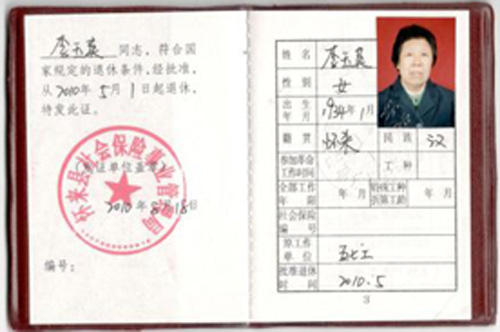 李玉英 同志,符合国
家规定的退休条件,经批准,
从2010年5月1日起退休,
特发此证。
怀来县社会保险事业管理局
(发证单位盖章)
2010年8月18日
编号:
姓名 李玉英
性别 女
出生年月 1934年1月
籍贯 怀来 民族 汉
参加革命工作时间 工种
全部工作年限 年 月 特殊工种折算工龄 年 月
社会保险编号
原工作单位 五七工
批准退休时间 2010.5
3